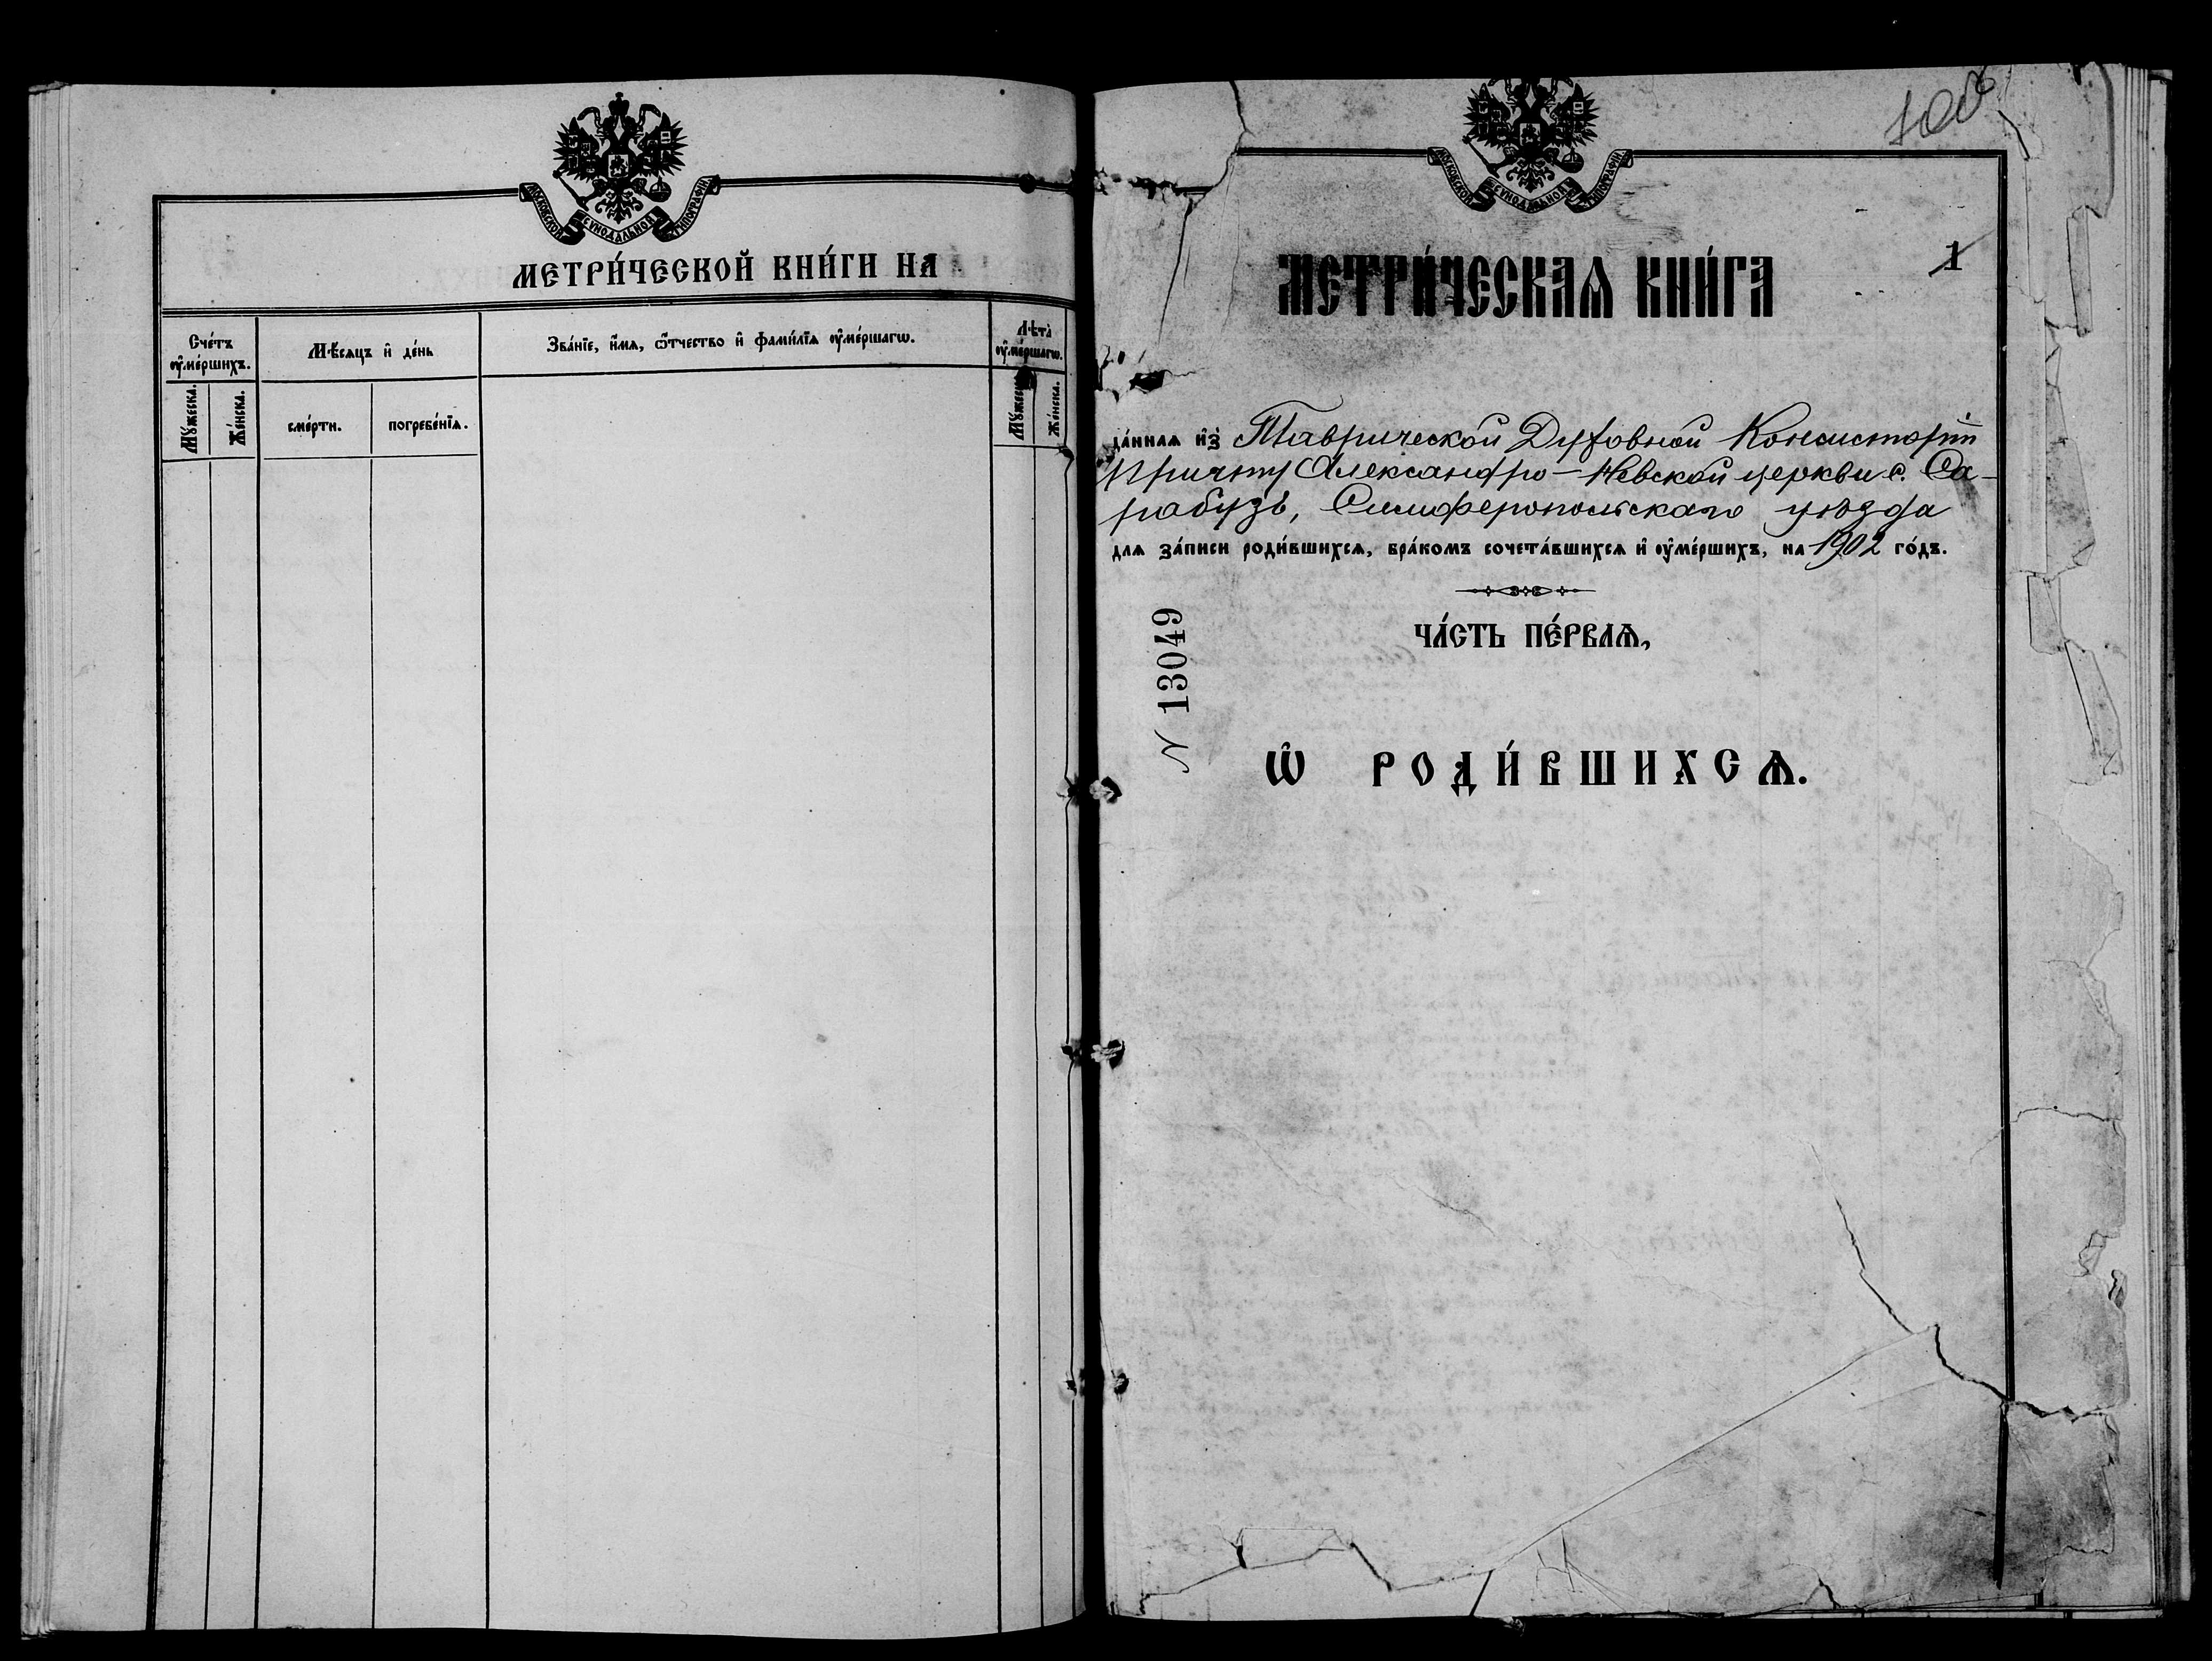 МОСКОВСКОЙ СѴНОДАЛЬНОЙ ТИПОГРАФІИ.
МЕТРИ́ЧЕСКОЙ КНИ́ГИ НА
Сче́тъ ᲂу҆ме́ршихъ.
Мѣ́сяцъ и҆ де́нь
Зва́нїе, и҆́мѧ, ѻ҆́тчество и҆ фами́лїѧ ᲂу҆ме́ршагѡ.
Лѣ́та ᲂу҆ме́ршагѡ.
Мꙋ́жеска.
Же́нска.
сме́рти.
погребе́нїѧ.
Мꙋ́жеска.
Же́нска.
МОСКОВСКОЙ СѴНОДАЛЬНОЙ ТИПОГРАФІИ.
МЕТРИ́ЧЕСКАѦ КНИ́ГА
1
да́ннаѧ и҆з̾ Таврической Духовной Консисторіи
Причту Александро-Невской церкви с. Са-
рабузъ, Симферопольскаго уѣзда
для за́писи роди́вшихсѧ, бра́комъ сочета́вшихсѧ и҆ ᲂу҆ме́ршихъ, на 1902 го́дъ.
ЧА́СТЬ ПЕ́РВАѦ,
N 13049
Ѽ РОДИ́ВШИХСѦ.